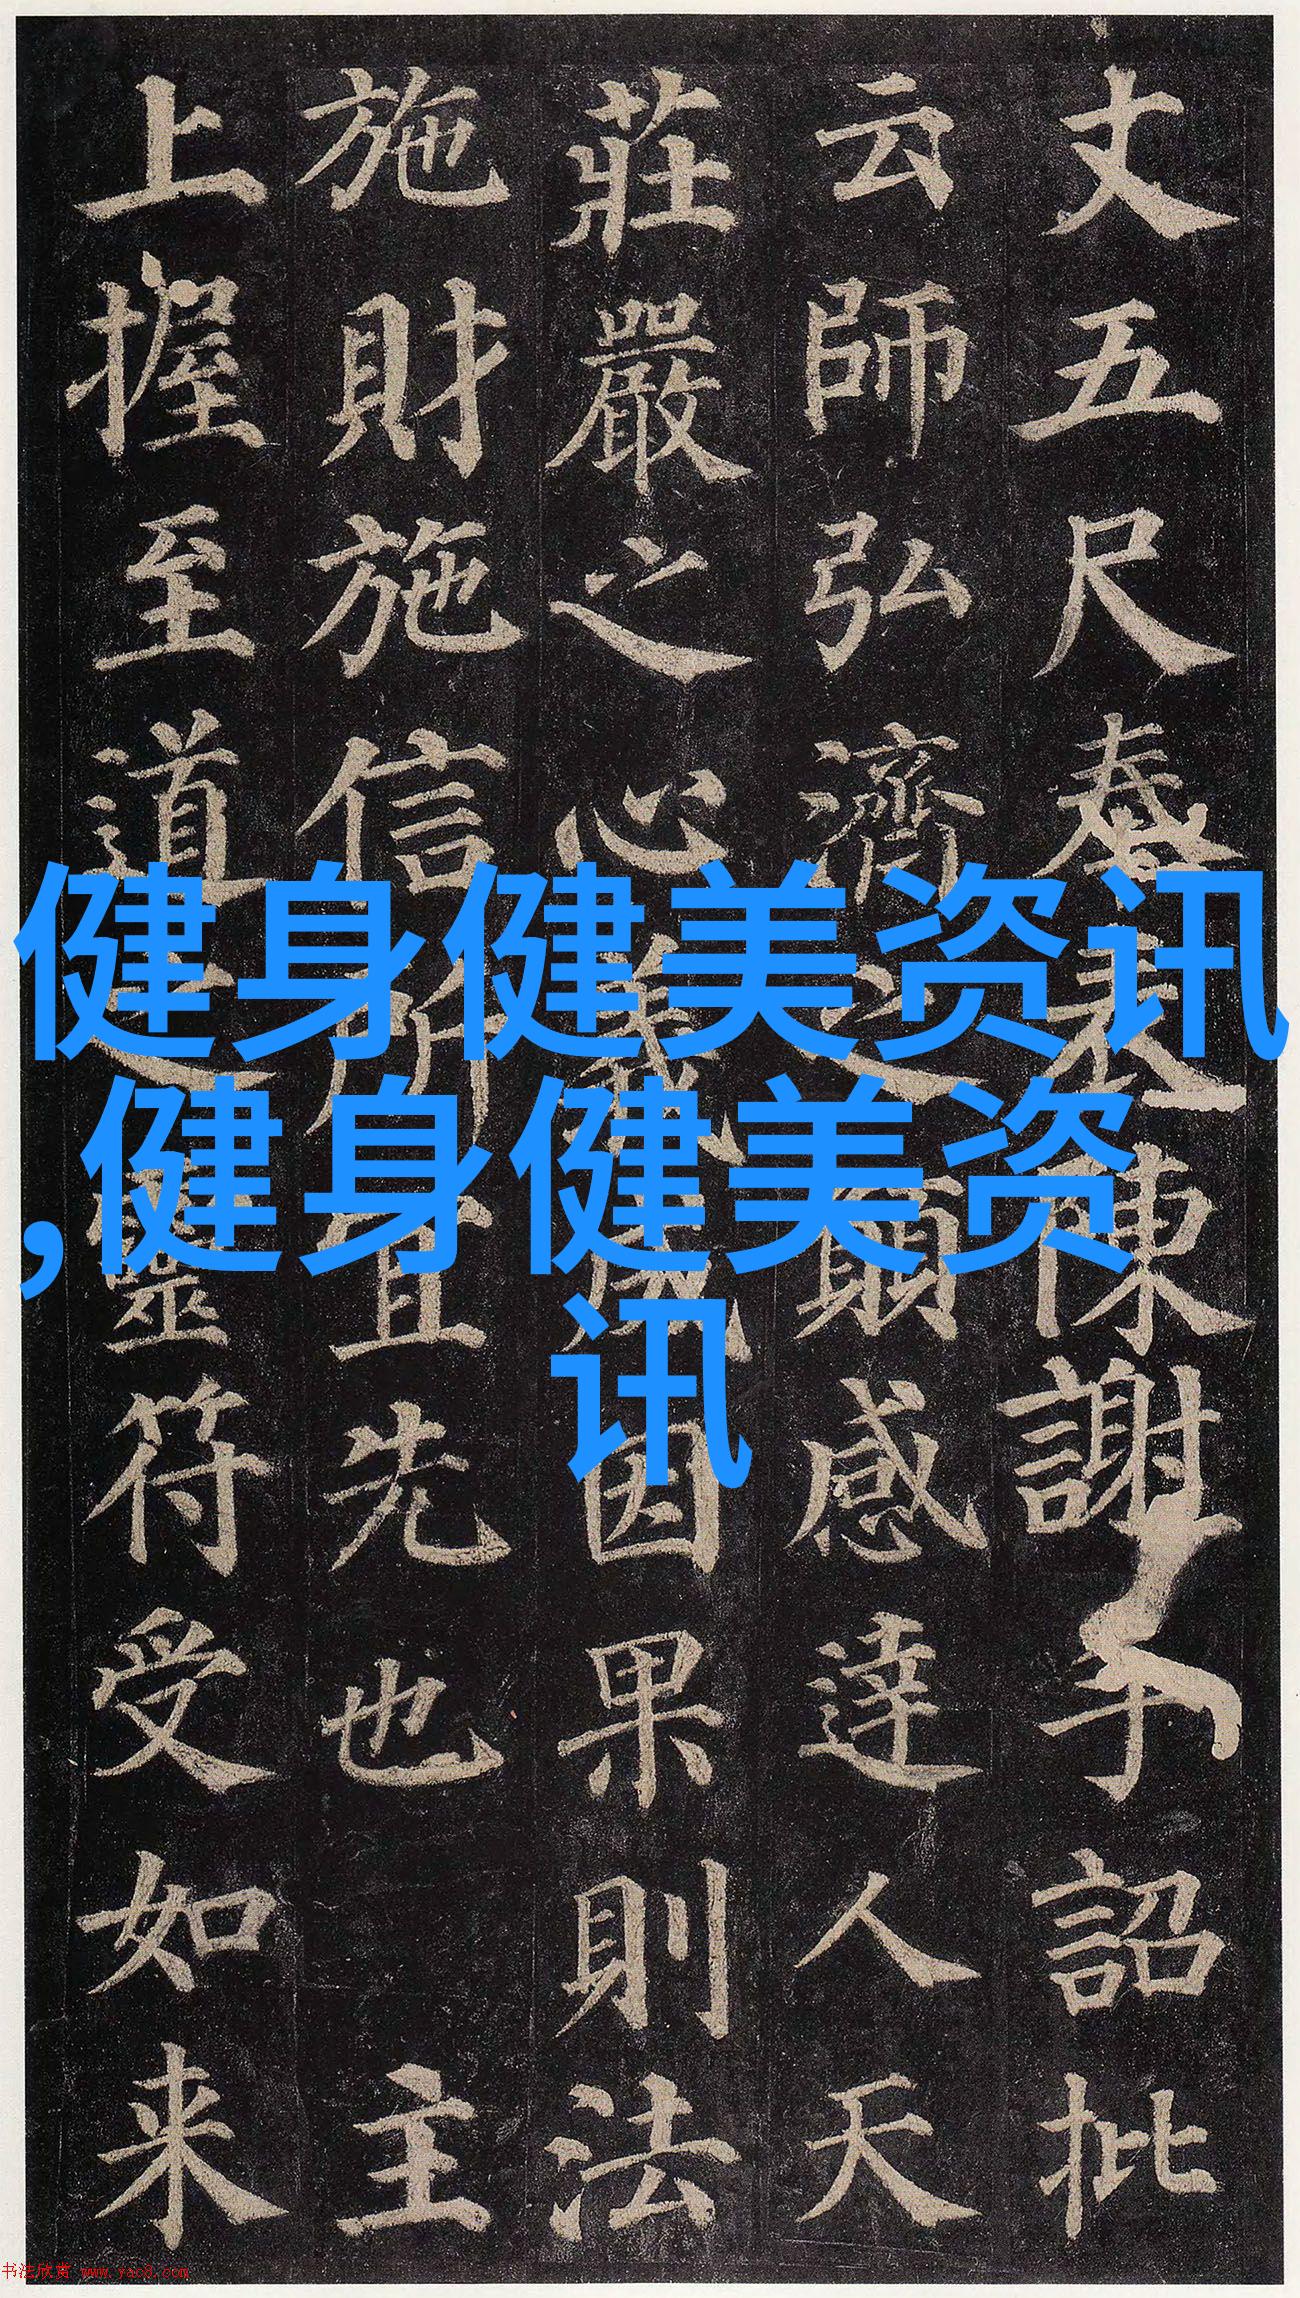 丈五尺奉表陳謝手詔批
云師弘濟之願感達人天
莊嚴之心義成因果則法
施財施信所宜先也 主
上握至道之靈符受如来
健身健美资讯
,健身健美资
讯
书法欣赏 www.yac8.com